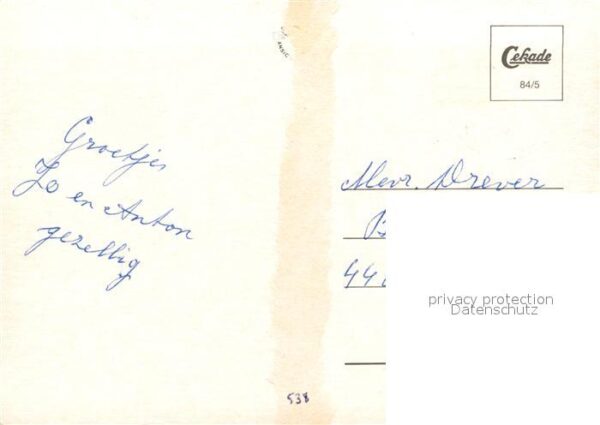 Cekade
84/5
Groetjes
Jo en Anton
gezellig
Mevr. Drever
B
44
privacy protection
Datenschutz
538